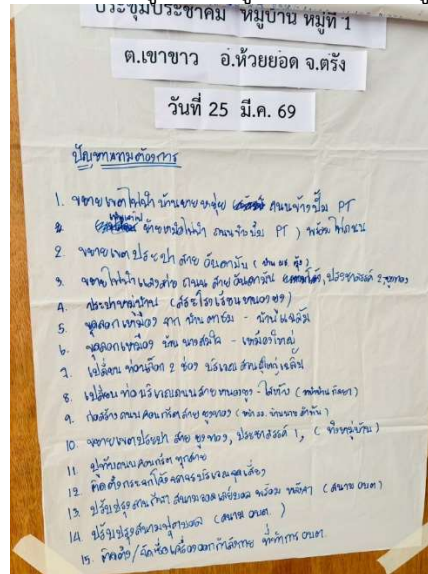 ประชุมประชาคม หมู่บ้าน หมู่ที่ 1
ต.เขาขาว อ.ห้วยยอด จ.ตรัง
วันที่ 25 มี.ค. 69
ปัญหาความต้องการ
1. ขยายเขตไฟฟ้า บ้านยายหนุ่ย ถนนข้างปั้ม PT
สายเหนือไฟฟ้า ถนนข้างปั้ม PT ) พร้อมไฟถนน
2. ขยายเขตประปา สาย อันดามัน
3. ขยายไฟฟ้าแสงสว่าง ถนน สายอันดามัน ประชาสรรค์ 2,
4. ประปาหมู่บ้าน (สระโรงเรียนหนองยูง)
5. ขุดลอกเหมือง จาก บ้าน - บ้าน
6. ขุดลอกเหมือง บ้าน นางสมใจ - เหมืองใหญ่
7. เปลี่ยน ท่อบล็อก 2 ช่อง บริเวณ สวนผู้ใหญ่
8. เปลี่ยนท่อ บริเวณถนนสาย
9. ก่อสร้างถนนคอนกรีตสาย
10. ขยายเขตประปา สาย ประชาสรรค์ 1, ( ทั้งหมู่บ้าน)
11. ถนนคอนกรีต ทุกสาย
12. ติดตั้งกระจกโค้ง บริเวณจุดเสี่ยง
13. ปรับปรุง สนามวอลเลย์บอล พร้อม หลังคา (สนาม อบต)
14. ปรับปรุงสนามฟุตบอล (สนาม อบต. )
15. ติดตั้ง/จัดซื้อเครื่องออกกำลังกาย ที่ทำการ อบต.